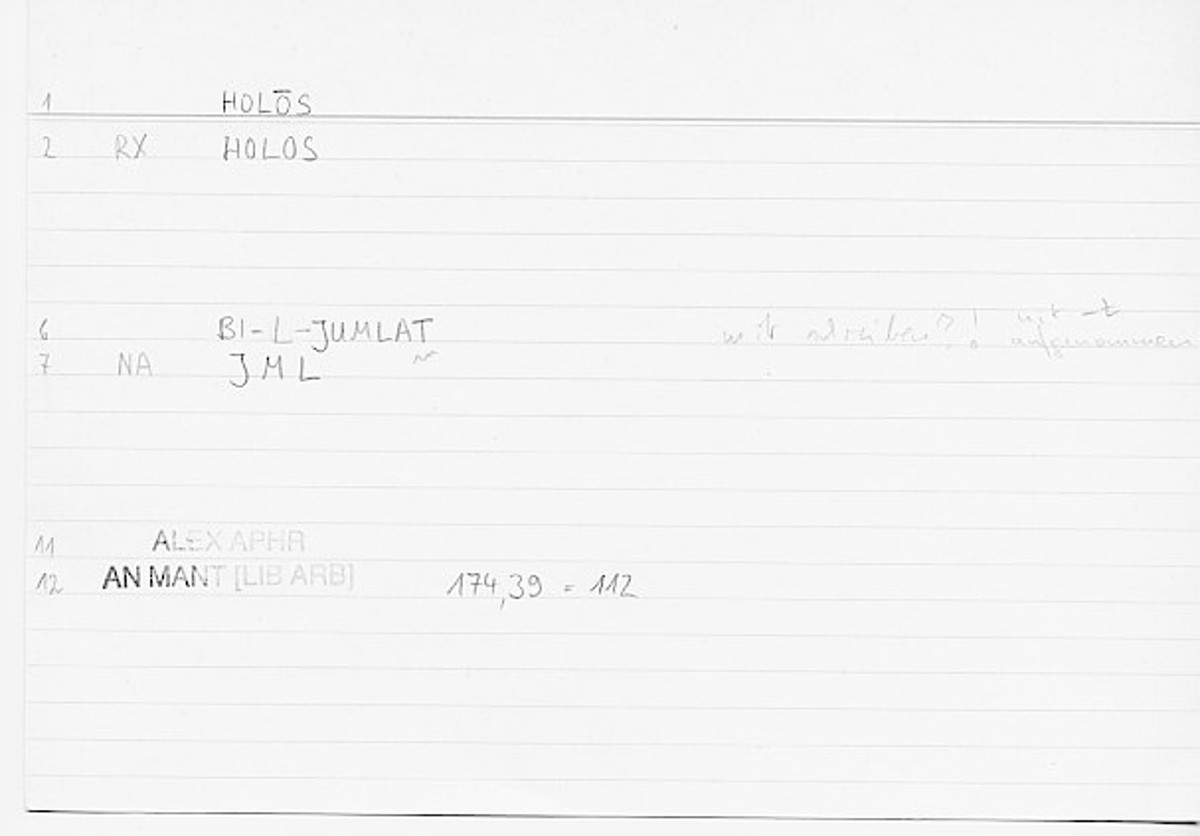 1 HOLŌS
2 RX HOLOS
6 BI-L-JUMLAT mit schreiben?! mit -t aufgenommen
7 NA JML
11 ALEX APHR
12 AN MANT [LIB ARB] 174,39 = 112